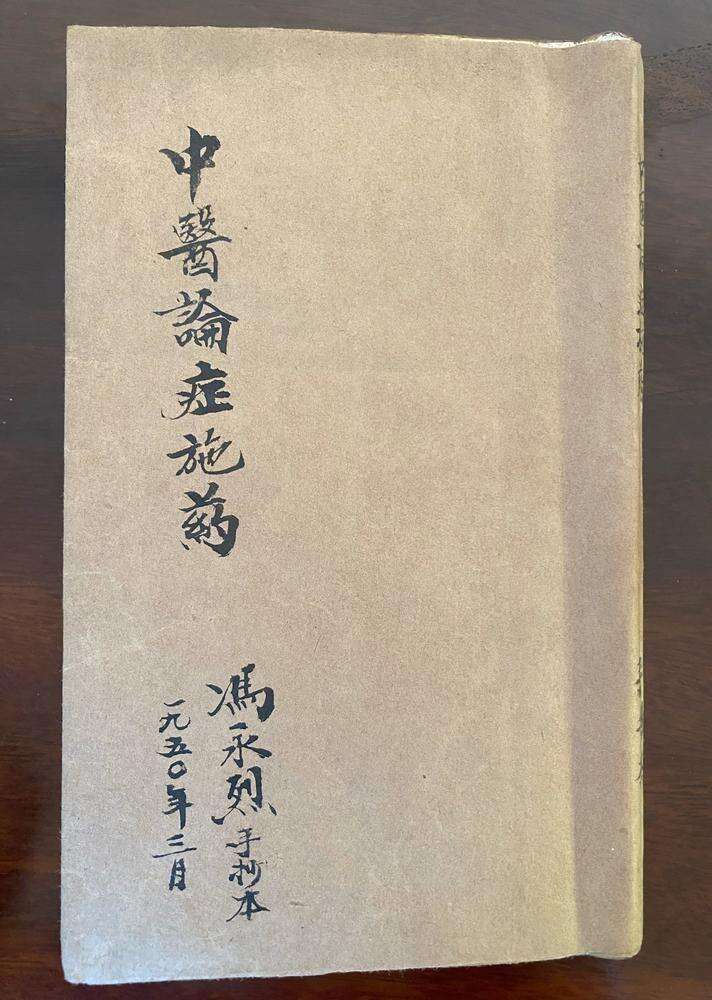 中醫論症施药
馮永烈手抄本
一九五〇年三月